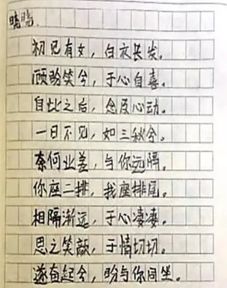 晓晓
初见有女，白衣长发。
顾盼笑兮，于心自喜。
自此之后，念及心动。
一日不见，如三秋兮。
奈何业差，与你远隔。
你座二排，我座排尾。
相隔渐远，于心凄凄。
思之笑颜，于情切切。
遂奋起兮，盼与你同坐。